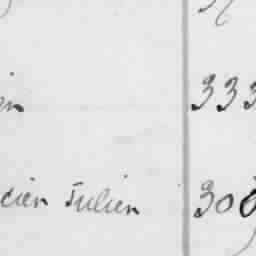 in 333
cien Julien 306